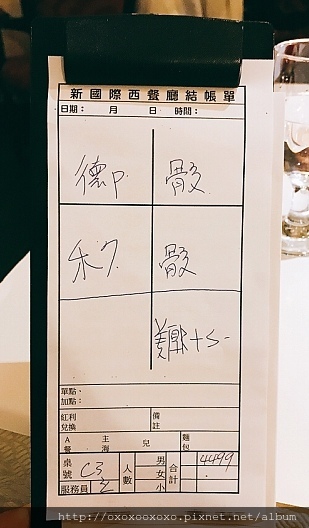 新國際西餐廳結帳單
日期： 月 日 時間：
德P. 骰
禾7. 骰
+S-
單點、
加點：
紅利
兌換
備
註
A 主 兒
餐 海
麵
包
桌
號
C3
服務員
人
數
男
女
小
合
計
4499
http://oxoxooxoxo.pixnet.net/album